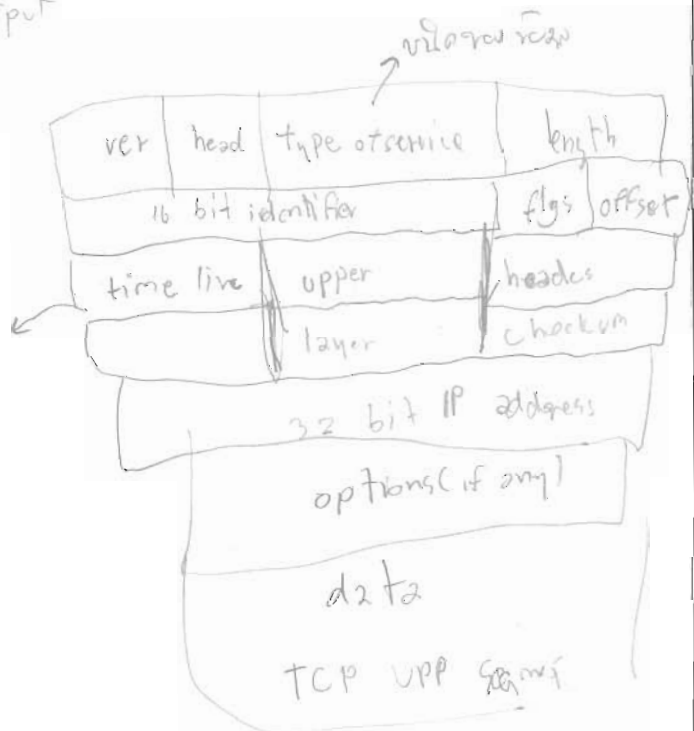 put
ชนิดของข้อมูล
ver head type ofservice length
16 bit identifier flgs offset
time live upper header
layer checkum
32 bit IP address
options (if any)
data
TCP UPP